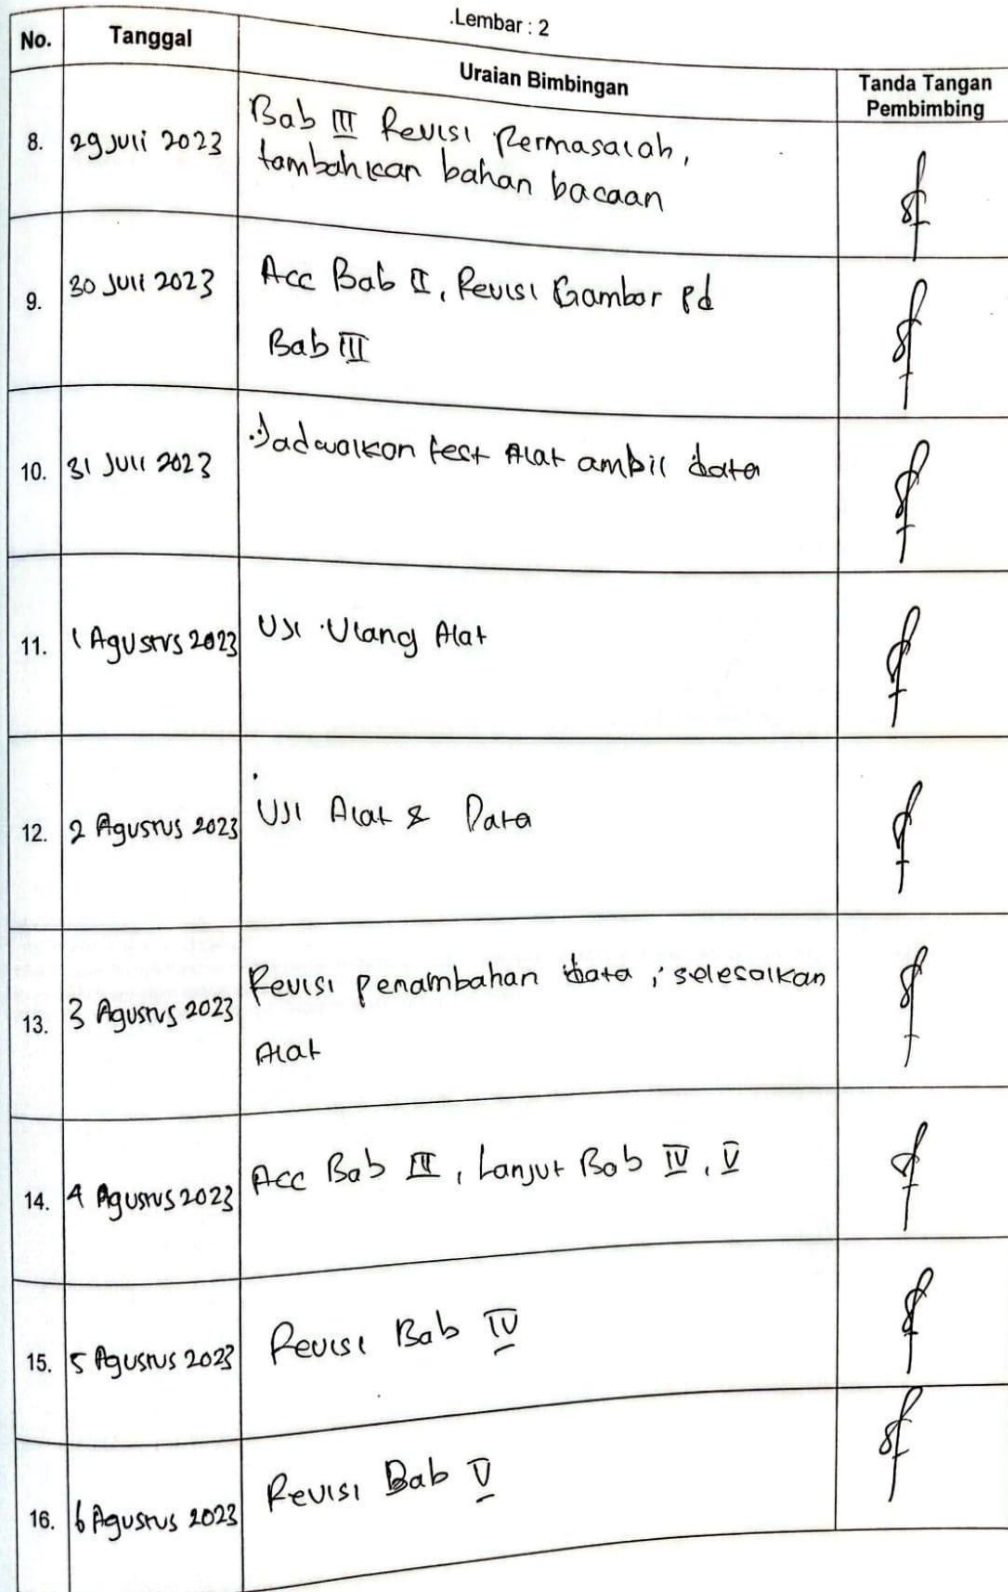 .Lembar : 2
No. Tanggal Uraian Bimbingan Tanda Tangan
Pembimbing
8. 29 Juli 2023 Bab III Revisi Permasalah,
tambahkan bahan bacaan
9. 30 Juli 2023 Acc Bab II, Revisi Gambar pd
Bab III
10. 31 Juli 2023 Jadwalkan test Alat ambil data
11. 1 Agustus 2023 Uji Ulang Alat
12. 2 Agustus 2023 Uji Alat & Data
13. 3 Agustus 2023 Revisi penambahan data, selesaikan
Alat
14. 4 Agustus 2023 Acc Bab III, Lanjut Bab IV, V
15. 5 Agustus 2023 Revisi Bab IV
16. 6 Agustus 2023 Revisi Bab V